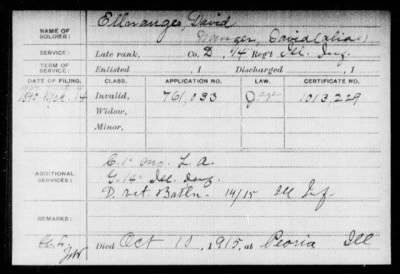 NAME OF SOLDIER: Elloranges, David
Granger, David (alias)
SERVICE: Late rank, Co. D, 14 Reg't Ill. Inf.
TERM OF SERVICE: Enlisted , 1 Discharged , 1
DATE OF FILING. CLASS. APPLICATION NO. LAW. CERTIFICATE NO.
Invalid, 761,033 1013,229
Widow,
Minor,
ADDITIONAL SERVICES: L. A.
G. 14" Ill. Inf.
D. vet. Batln. 14/15 Ill Inf
REMARKS:
Died Oct 10, 1915, at Peoria Ill